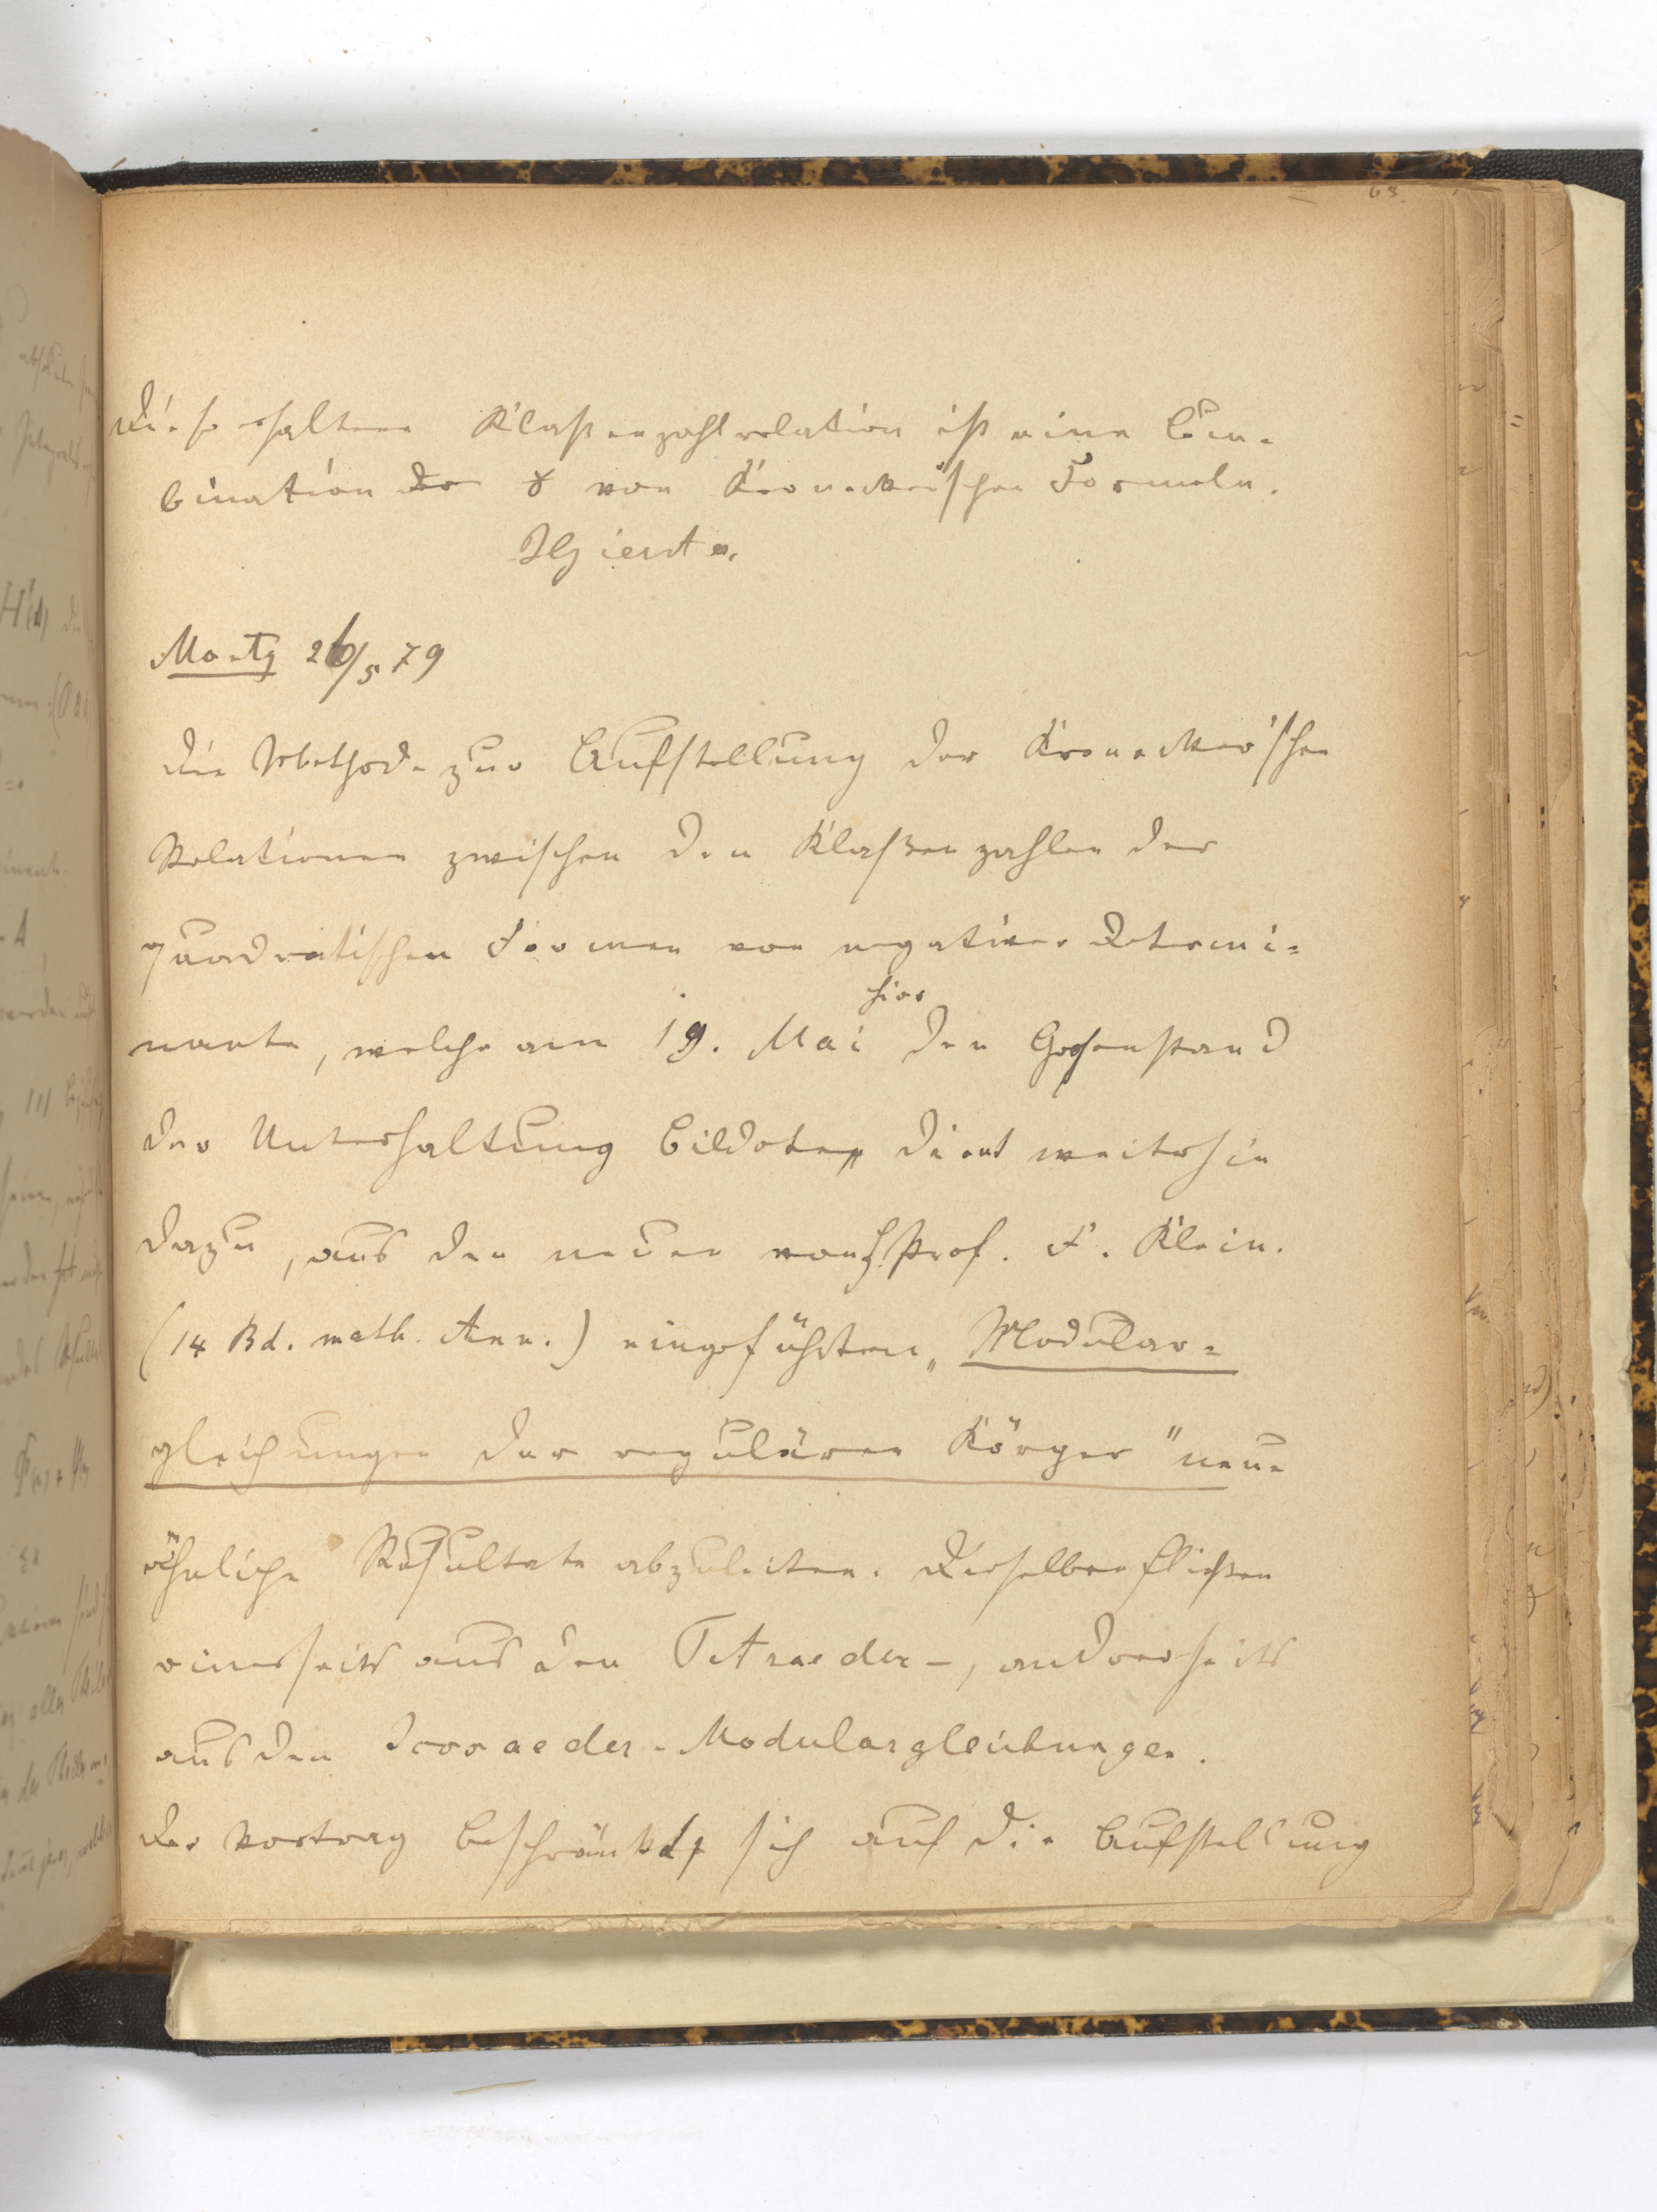 63.
Die so erhaltene Klaßenzahlrelation ist eine Com-
bination der 8 von Kronecker'schen Formeln.
JGierster.
Montg 26/5 79
Die Methode zur Aufstellung der Kronecker'schen
Relationen zwischen den Klaßenzahlen der
quadratischen Formen von negativer Determi=
nante, welche am 19. Mai hier den Gegenstand
der Unterhaltung bildete, dient weiterhin
dazu, aus den neuen von H. Prof. F. Klein.
(14 Bd. math. Ann.) eingeführten „Modular=
gleichungen der regulären Körper" neue
ähnliche Resultate abzuleiten. Dieselben fließen
einerseits aus den Tetraeder-, andrerseits
aus den Icosaeder-Modulargleichungen.
Der Vortrag beschränkt sich auf die Aufstellung